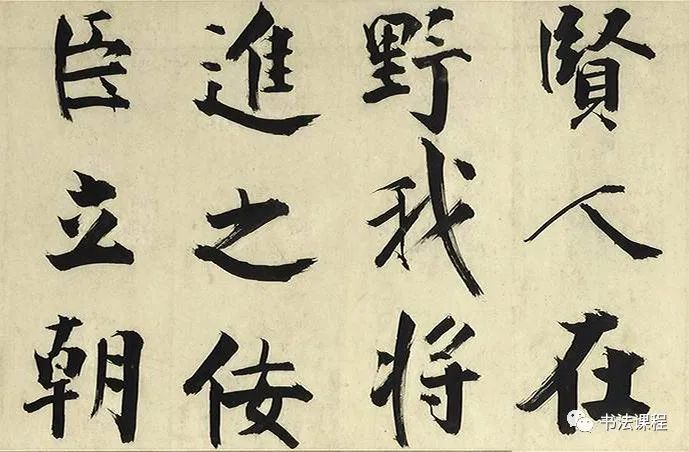 賢人在
野我将
進之佞
臣立朝
书法课程